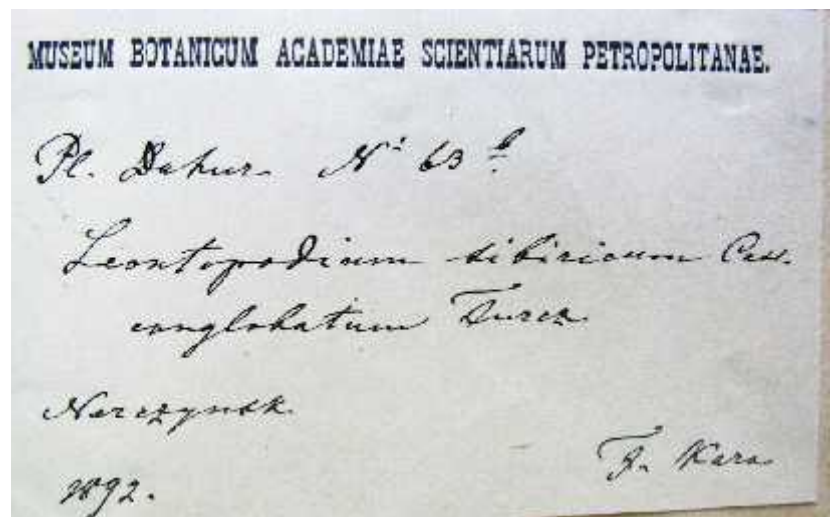 MUSEUM BOTANICUM ACADEMIAE SCIENTIARUM PETROPOLITANAE.
Pl. Dahur. № 63 b
Leontopodium sibiricum Cass.
conglobatum Turcz
Nerczynsk.
1892.
F. Karo